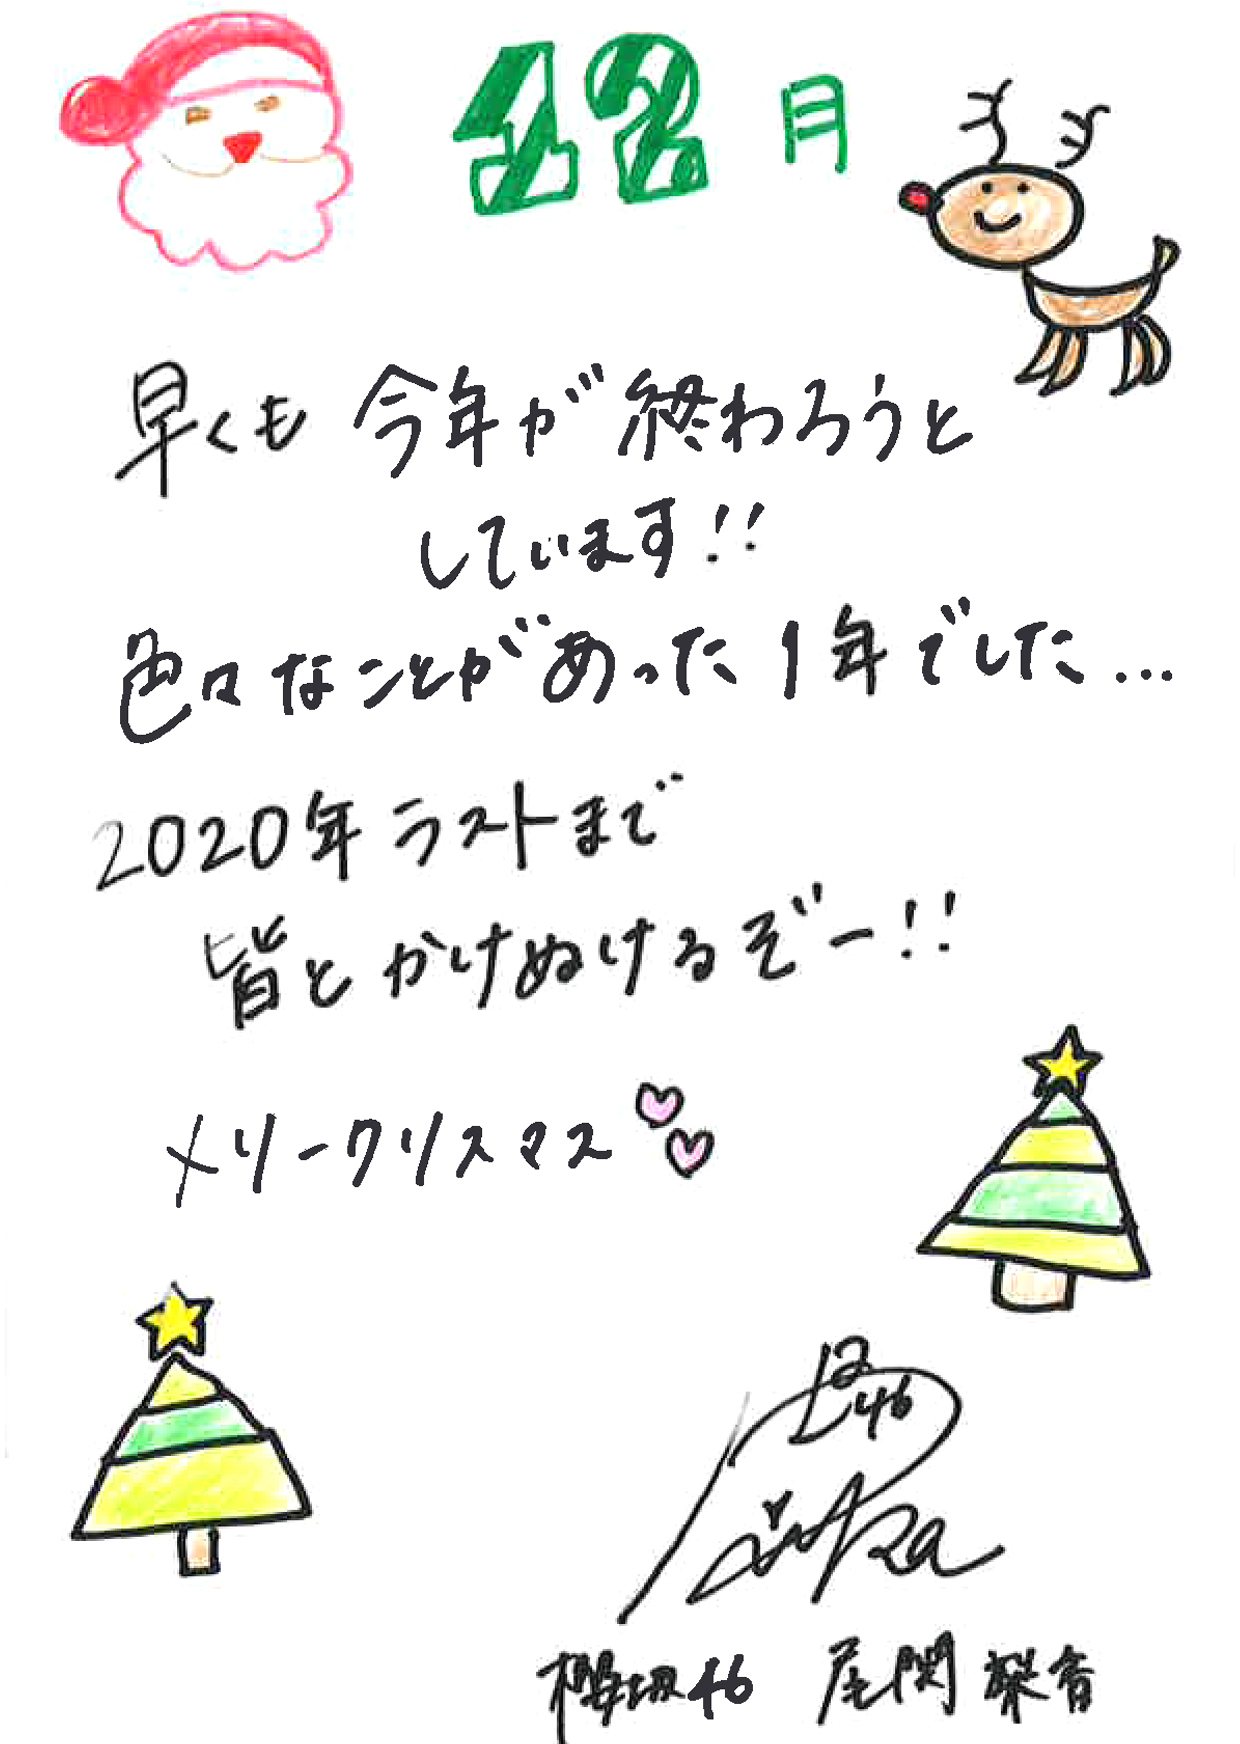 12月
早くも今年が終わろうと
しています!!
色々なことがあった1年でした...
2020年ラストまで
皆とかけぬけるぞー!!
メリークリスマス
櫻坂46 尾関 梨香